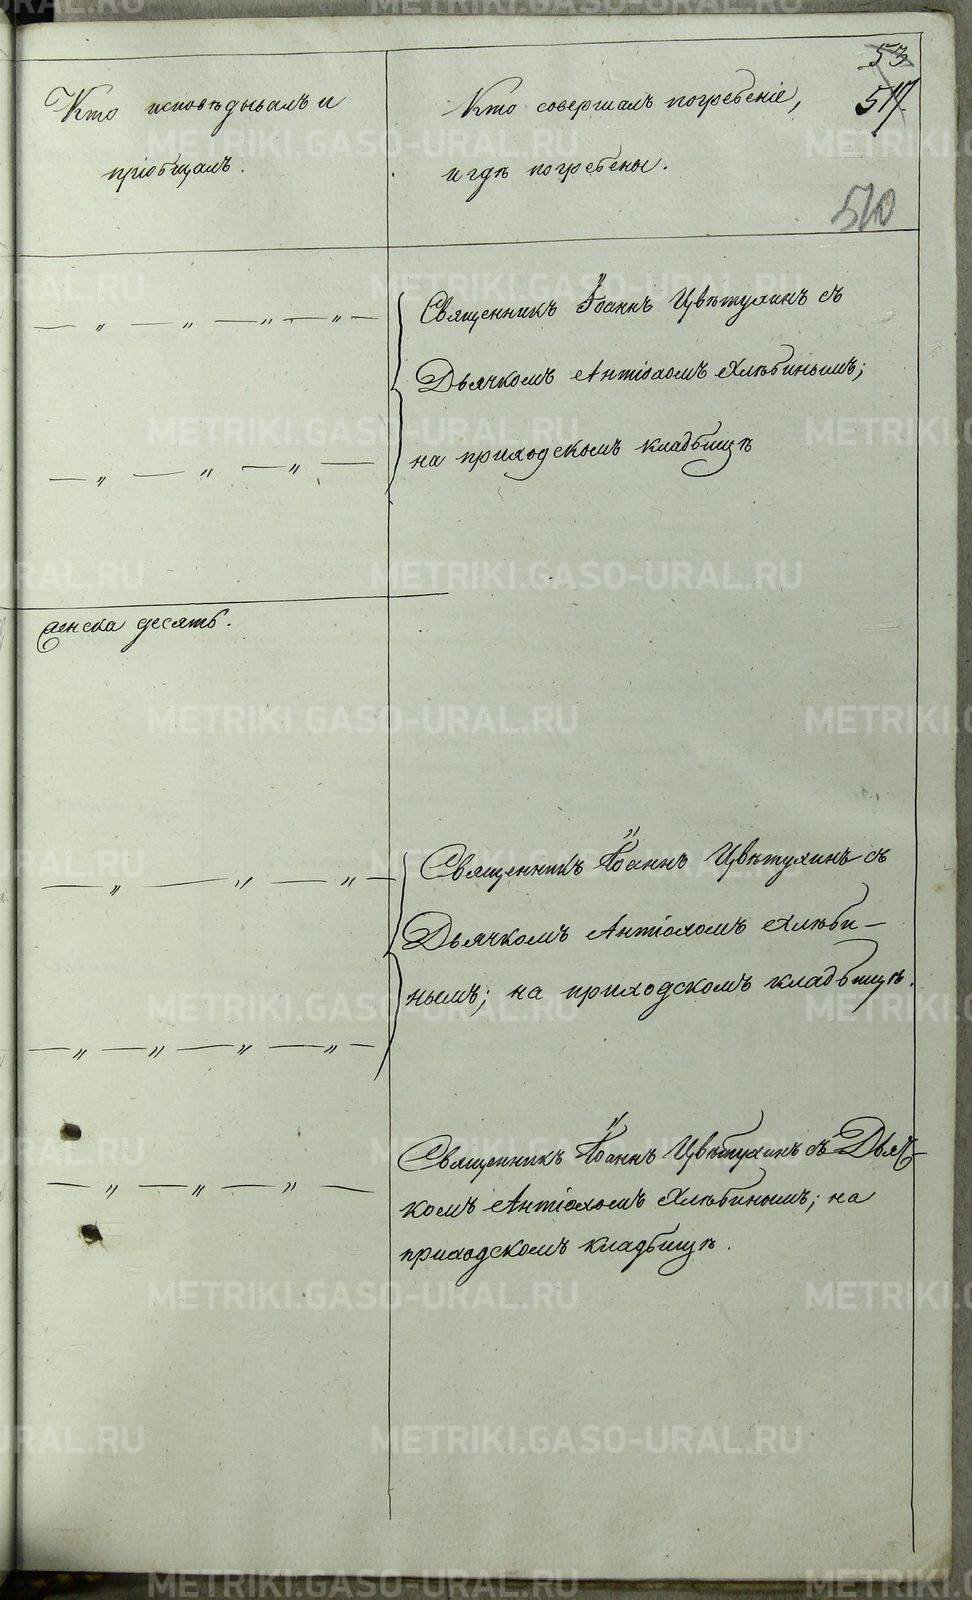 53
517
510
Кто исповѣдывалъ и
пріобщалъ.
Кто совершалъ погребеніе,
и гдѣ погребены.
Священникъ Іоаннъ Цвѣтухинъ съ
Дьячкомъ Антіохомъ Хлѣбинымъ;
на приходскомъ кладбищѣ
женска десять.
Священникъ Іоаннъ Цвѣтухинъ съ
Дьячкомъ Антіохомъ Хлѣби-
нымъ; на приходскомъ кладбищѣ.
Священникъ Іоаннъ Цвѣтухинъ съ Дьяч-
комъ Антіохомъ Хлѣбинымъ; на
приходскомъ кладбищѣ.
METRIKI.GASO-URAL.RU